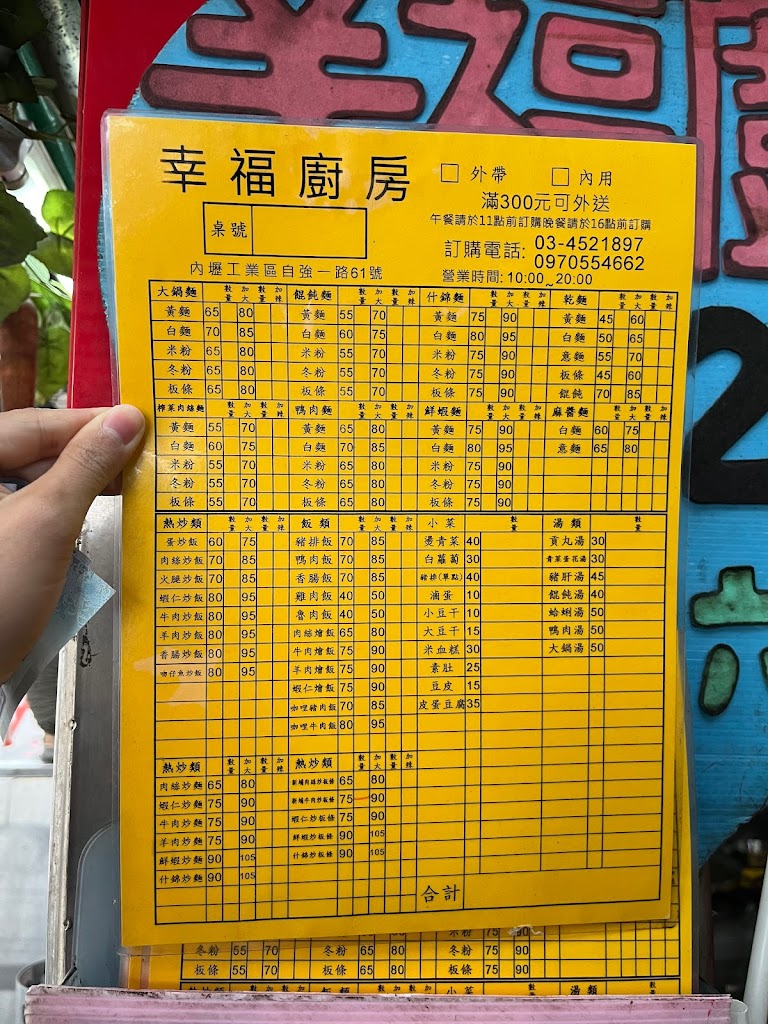 幸福廚
幸福廚房 □ 外帶 □ 內用
滿300元可外送
午餐請於11點前訂購晚餐請於16點前訂購
桌號
訂購電話: 03-4521897
0970554662
內壢工業區自強一路61號
營業時間: 10:00~20:00
大鍋麵 數量 加大 數量 加辣 餛飩麵 數量 加大 數量 加辣 什錦麵 數量 加大 數量 加辣 乾麵 數量 加大 數量 加辣
黃麵 65 80 黃麵 55 70 黃麵 75 90 黃麵 45 60
白麵 70 85 白麵 60 75 白麵 80 95 白麵 50 65
米粉 65 80 米粉 55 70 米粉 75 90 意麵 55 70
冬粉 65 80 冬粉 55 70 冬粉 75 90 板條 45 60
板條 65 80 板條 55 70 板條 75 90 餛飩 70 85
榨菜肉絲麵 數量 加大 數量 加辣 鴨肉麵 數量 加大 數量 加辣 鮮蝦麵 數量 加大 數量 加辣 麻醬麵 數量 加大 數量 加辣
黃麵 55 70 黃麵 65 80 黃麵 75 90 白麵 60 75
白麵 60 75 白麵 70 85 白麵 80 95 意麵 65 80
米粉 55 70 米粉 65 80 米粉 75 90
冬粉 55 70 冬粉 65 80 冬粉 75 90
板條 55 70 板條 65 80 板條 75 90
熱炒類 數量 加大 數量 加辣 飯類 數量 加大 數量 加辣 小菜 數量 湯類 數量
蛋炒飯 60 75 豬排飯 70 85 燙青菜 40 貢丸湯 30
肉絲炒飯 70 85 鴨肉飯 70 85 白蘿蔔 30 青菜蛋花湯 30
火腿炒飯 70 85 香腸飯 70 85 豬排(單點) 40 豬肝湯 45
蝦仁炒飯 80 95 雞肉飯 40 50 滷蛋 10 餛飩湯 40
牛肉炒飯 80 95 魯肉飯 40 50 小豆干 10 蛤蜊湯 50
羊肉炒飯 80 95 肉絲燴飯 65 80 大豆干 15 鴨肉湯 50
香腸炒飯 80 95 牛肉燴飯 75 90 米血糕 30 大鍋湯 50
吻仔魚炒飯 80 95 羊肉燴飯 75 90 素肚 25
蝦仁燴飯 75 90 豆皮 15
咖哩豬肉飯 70 85 皮蛋豆腐 35
咖哩牛肉飯 80 95
熱炒類 數量 加大 數量 加辣 熱炒類 數量 加大 數量 加辣
肉絲炒麵 65 80 新埔肉絲炒板條 65 80
蝦仁炒麵 75 90 新埔牛肉炒板條 75 90
牛肉炒麵 75 90 蝦仁炒板條 75 90
羊肉炒麵 75 90 鮮蝦炒板條 90 105
鮮蝦炒麵 90 105 什錦炒板條 90 105
什錦炒麵 90 105
合計
米粉 75 90
冬粉 55 70 冬粉 65 80 冬粉 75 90
板條 55 70 板條 65 80 板條 75 90
小菜 數量 湯類 數量